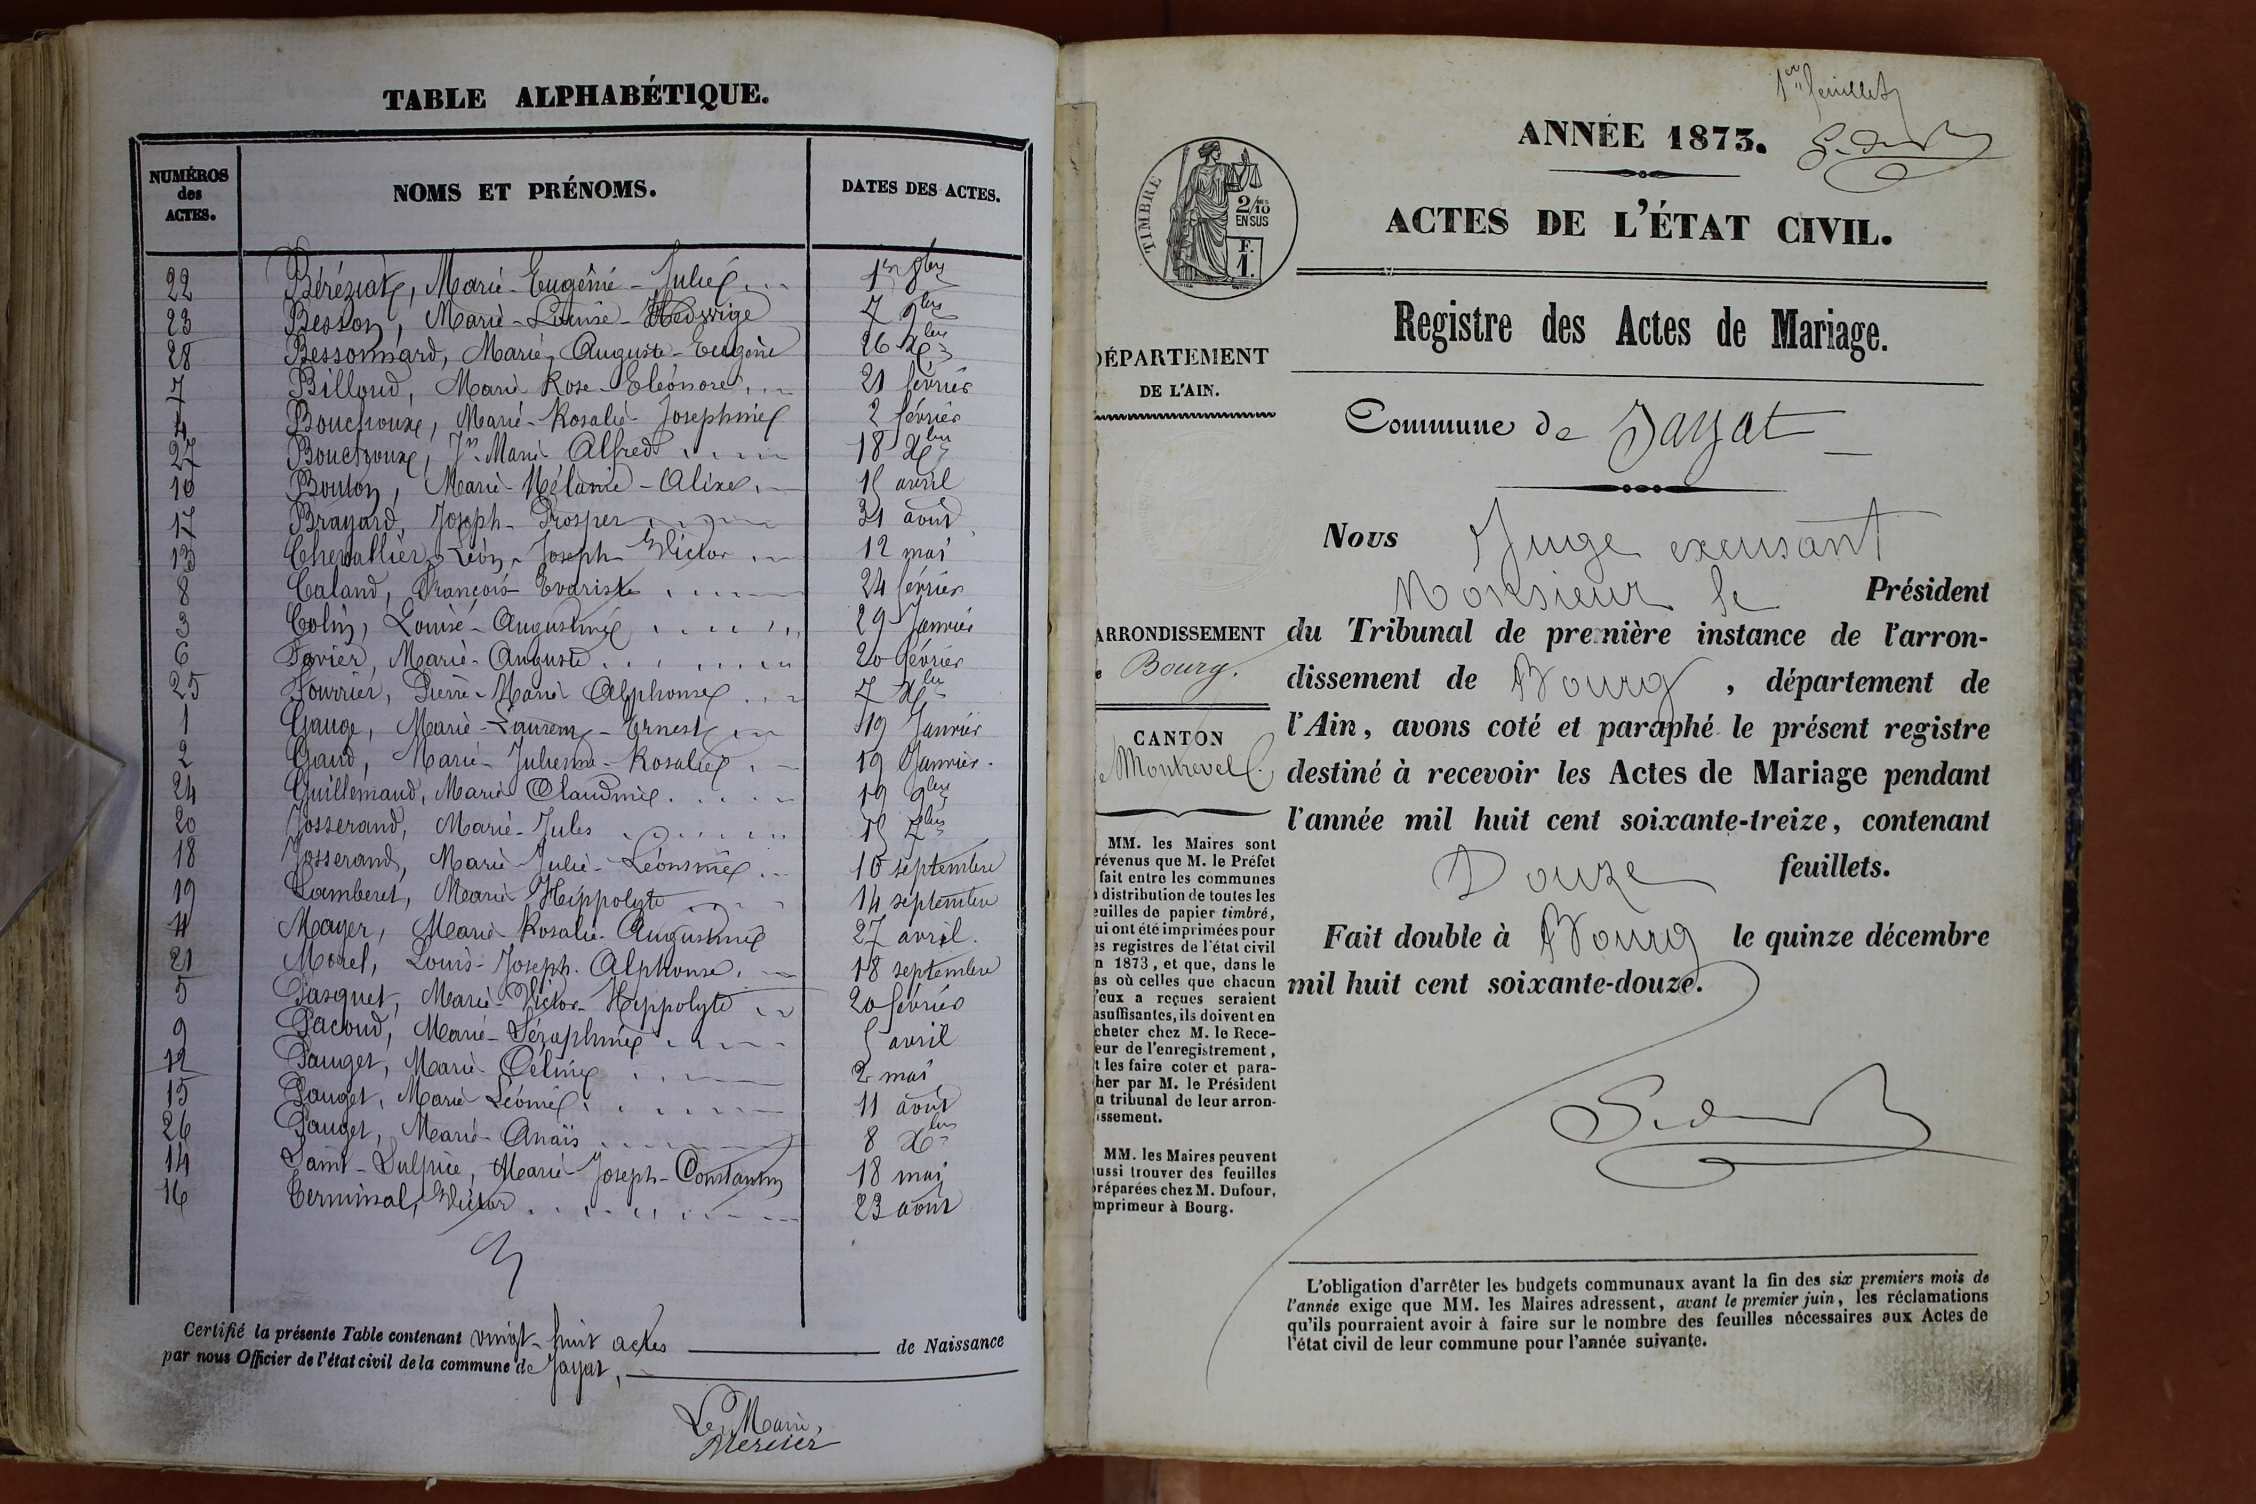 TABLE ALPHABÉTIQUE.
NUMÉROS des ACTES. NOMS ET PRÉNOMS. DATES DES ACTES.
22 Béréziat, Marie-Eugénie-Julie 1er 8bre
23 Besson, Marie-Louise-Hedwige 7 9bre
28 Bessonnard, Marie-Auguste-Eugène 26 Xbre
7 Billoud, Marie Rose-Eléonore 21 février
4 Bouchoux, Marie-Rosalie-Josephine 2 février
27 Bouchoux, Jn-Marie Alfred 18 Xbre
10 Bouton, Marie-Mélanie-Alix 15 avril
17 Brayard, Joseph-Prosper 31 août
13 Chevallier, Léon-Joseph Victor 12 mai
8 Caland, François-Evariste 24 février
3 Colin, Louise-Augustine 29 Janvier
6 Favier, Marie-Auguste 20 février
25 Fourrier, Pierre-Marie Alphonse 7 Xbre
1 Gauge, Marie-Laurent-Ernest 19 Janvier
2 Gaud, Marie-Julienne-Rosalie 19 Janvier.
24 Guillemaud, Marie Claudine 19 9bre
20 Josserand, Marie-Jules 15 7bre
18 Josserand, Marie-Julie-Léontine 10 septembre
19 Lamberet, Marie Hippolyte 14 septembre
11 Mayer, Marie-Rosalie-Augustine 27 avril.
21 Morel, Louis-Joseph-Alphonse 18 septembre
5 Pasquet, Marie-Victor-Hippolyte 20 février
9 Pacoud, Marie-Séraphine 5 avril
12 Pauget, Marie-Céline 2 mai
15 Pauget, Marie Léonie 11 août
26 Pauget, Marie-Anaïs 8 Xbre
14 Saint-Sulpice, Marie Joseph-Constantin 18 mai
16 Terminal, Victor 23 août
Certifié la présente Table contenant vingt-huit actes de Naissance
par nous Officier de l'état civil de la commune de Jayat,
Le Maire,
Mercier
1er feuillet
ANNÉE 1873.
TIMBRE
2/10 MES
EN SUS
F.
1.
ACTES DE L'ÉTAT CIVIL.
Registre des Actes de Mariage.
DÉPARTEMENT
DE L'AIN.
Commune de Jayat
Nous Juge excusant
Monsieur le Président
ARRONDISSEMENT
Bourg.
du Tribunal de première instance de l'arron-
dissement de Bourg, département de
l'Ain, avons coté et paraphé le présent registre
CANTON
Montrevel.
destiné à recevoir les Actes de Mariage pendant
l'année mil huit cent soixante-treize, contenant
Douze feuillets.
Fait double à Bourg le quinze décembre
mil huit cent soixante-douze.
MM. les Maires sont
révenus que M. le Préfet
fait entre les communes
a distribution de toutes les
euilles de papier timbré,
ui ont été imprimées pour
es registres de l'état civil
n 1873, et que, dans le
as où celles que chacun
'eux a reçues seraient
nsuffisantes, ils doivent en
cheter chez M. le Rece-
eur de l'enregistrement,
t les faire coter et para-
her par M. le Président
u tribunal de leur arron-
issement.
MM. les Maires peuvent
ussi trouver des feuilles
réparées chez M. Dufour,
mprimeur à Bourg.
L'obligation d'arrêter les budgets communaux avant la fin des six premiers mois de
l'année exige que MM. les Maires adressent, avant le premier juin, les réclamations
qu'ils pourraient avoir à faire sur le nombre des feuilles nécessaires aux Actes de
l'état civil de leur commune pour l'année suivante.